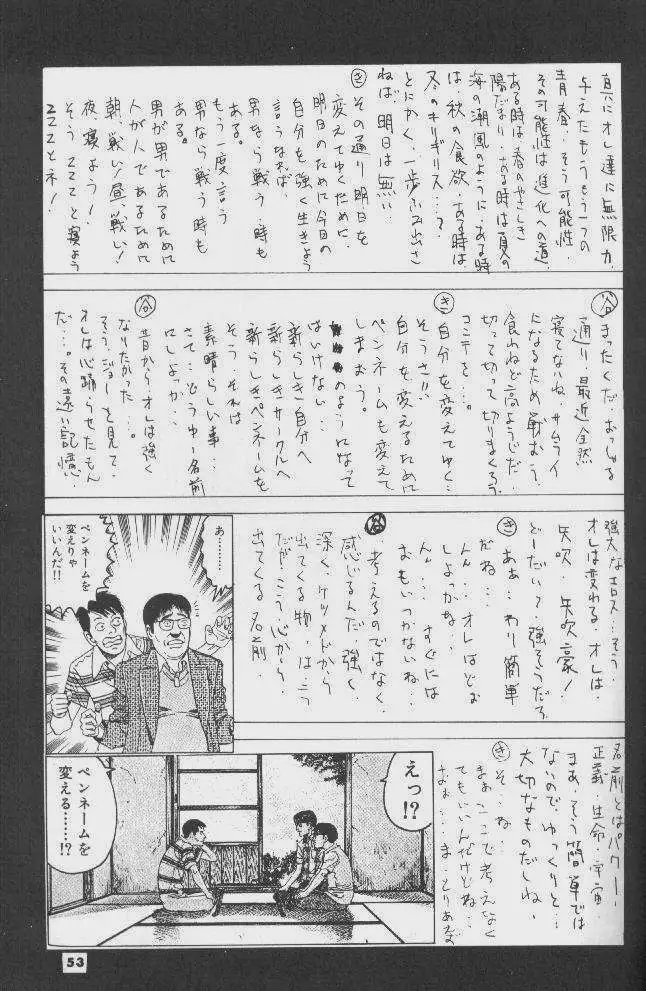 真にオレ達に無限力、
与えたもうもう一つの
青春、そう可能性、
その可能性は進化への道、
ある時は春のやさしき
陽だまり、ある時は夏の
海の潮風のように、ある時
は、秋の食欲、ある時は
冬のキリギリス…？
とにかく、一歩ふみ出さ
ねば明日は無い…
き その通り明日を
変えてゆくために、
明日のために今日の
自分を強く生きよう
言うなれば、
男なら戦う時も
ある。
もう一度言う
男なら戦う時も
ある。
男が男であるために
人が人であるために
朝、戦い！昼、戦い！
夜寝よう！
そうZZZと寝よう
ZZZとネ！
まったくだ、おっしゃる
通り、最近全然
寝てないね、サムライ
になるため戦おう、
食わねど高ようじだ、
切って切って切りまくろう、
コミテを…
き 自分を変えてゆく…
そうさ!!
自分を変えるために
ペンネームも変えて
しまおう。
のようになって
はいけない…
新らしき自分へ
新らしきサークルへ
新らしきペンネームを
そう…それは
素晴らしい事…
さて…どうゆー名前
にしよっか、
昔からオレは強く
なりたかった…。
そう、ジョーを見て、
オレは心踊らせたもん
だ…。その遠い記憶
強大なエロス…そう、
オレは変わる、オレは、
矢吹、矢吹豪！
どーだいて、強そうだろ
き ああ…わり簡単
だね…
んん…オレはどお
しよっかな…
んん…すぐには
おもいつかないね、
考えるのではなく、
感じるんだ、強く
深く、ケツメドから
出てくる物…はっ
だが…こう、心から
出てくる名前、
あ………
ペンネームを
変えりゃ
いいんだ!!
名前とはパワー、
正義、生命、宇宙、
まあ、そう簡単では
ないので、ゆっくりと…
大切なものだしね、
き そ…ね…
まぁ、ここで考えなく
てもいいんだけどね…
なぉ……ま、とりあえず
えっ!?
ペンネームを
変える……!?
53